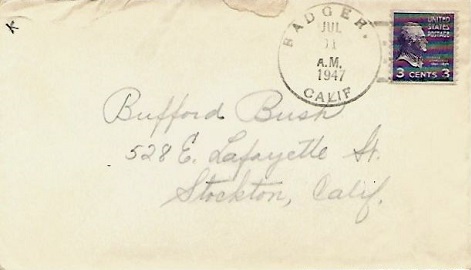 BADGER.
JUL
11
A.M.
1947
CALIF
UNITED
STATES
POSTAGE
3 CENTS 3
Bufford Bush
528 E. Lafayette St.
Stockton, Calif.